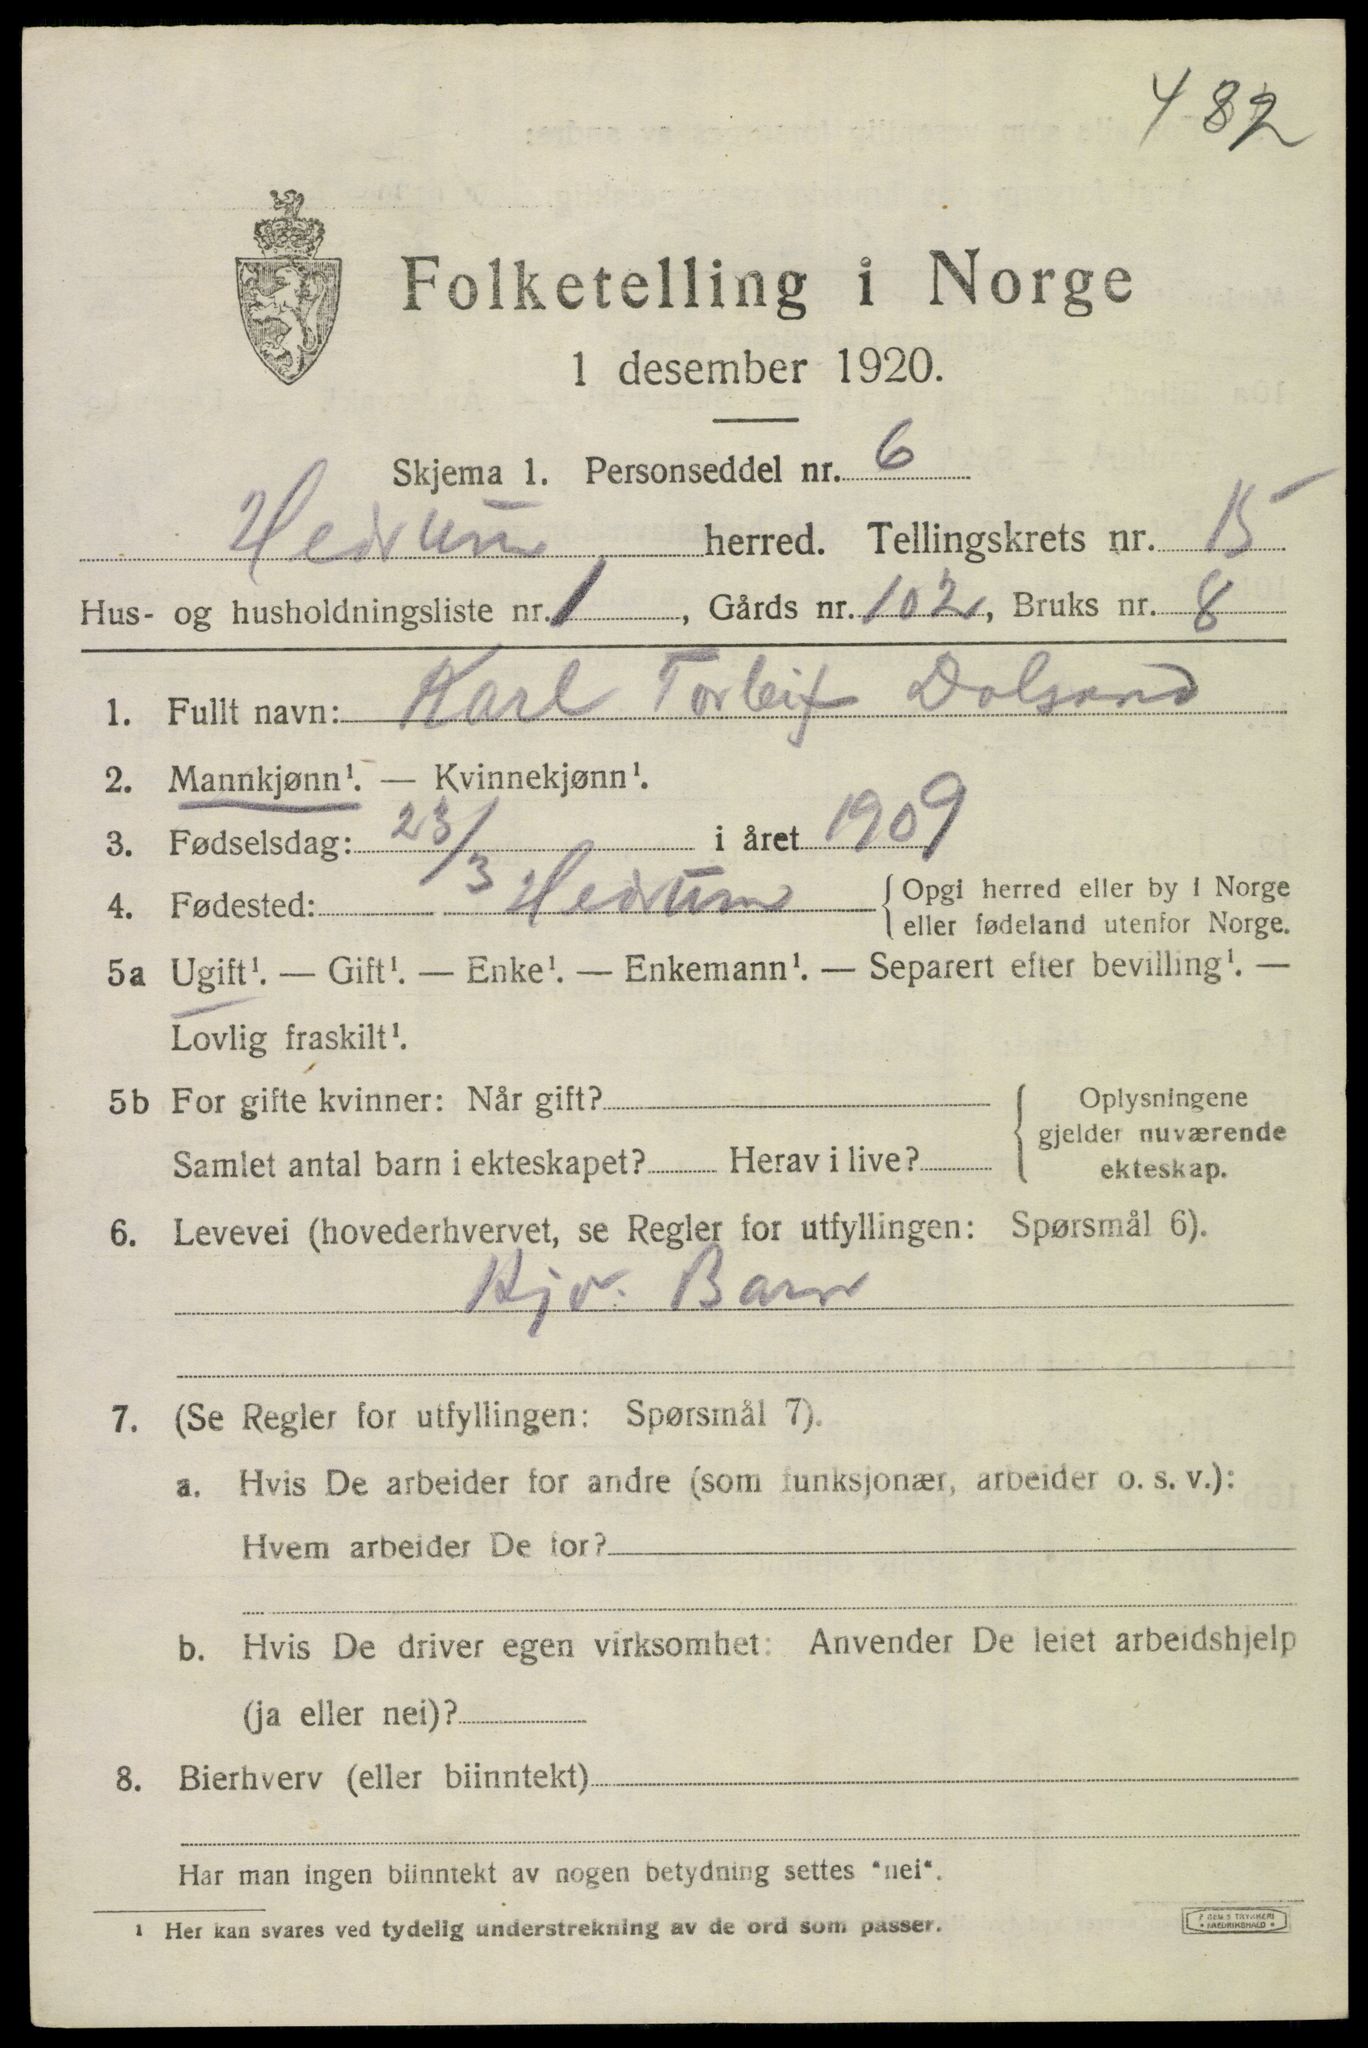 482
Folketelling i Norge
1 desember 1920.
Skjema 1. Personseddel nr. 6
Hedrum herred. Tellingskrets nr. 15
Hus- og husholdningsliste nr. 1, Gårds nr. 102, Bruks nr. 8
1. Fullt navn: Karl Torleif Dolsand
2. Mannkjønn¹. — Kvinnekjønn¹.
3. Fødselsdag: 23/3 i året 1909
4. Fødested: Hedrum { Opgi herred eller by i Norge
eller fødeland utenfor Norge.
5a Ugift¹. — Gift¹. — Enke¹. — Enkemann¹. — Separert efter bevilling¹. —
Lovlig fraskilt¹.
5b For gifte kvinner: Når gift? { Oplysningene
gjelder nuværende
Samlet antal barn i ekteskapet? Herav i live? ekteskap.
6. Levevei (hovederhvervet, se Regler for utfyllingen: Spørsmål 6).
Barn
7. (Se Regler for utfyllingen: Spørsmål 7).
a. Hvis De arbeider for andre (som funksjonær, arbeider o. s. v.):
Hvem arbeider De for?
b. Hvis De driver egen virksomhet: Anvender De leiet arbeidshjelp
(ja eller nei)?
8. Bierhverv (eller biinntekt)
Har man ingen biinntekt av nogen betydning settes "nei".
¹ Her kan svares ved tydelig understrekning av de ord som passer.
TRYKKERI
FREDRIKSHALD